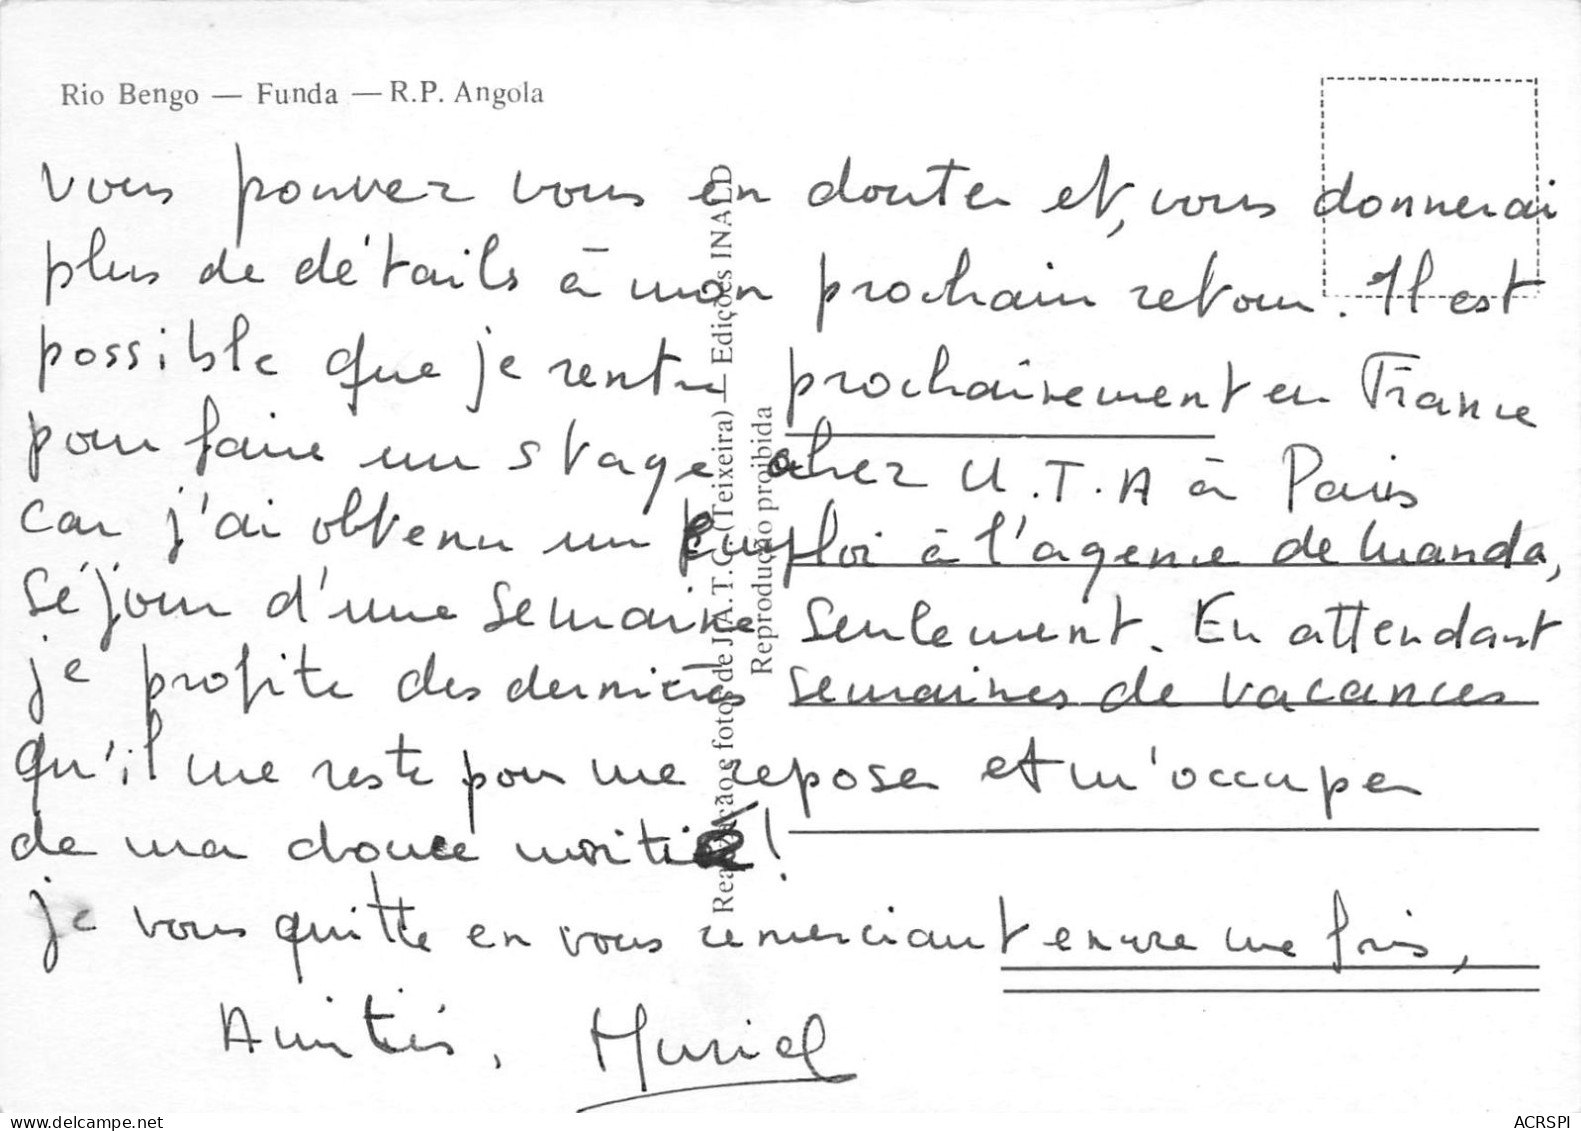 Rio Bengo — Funda — R.P. Angola
vous pouvez vous en douter et, vous donnerai
plus de détails à mon prochain retour. Il est
possible que je rentre prochainement en France
pour faire un stage chez U.T.A à Paris
car j'ai obtenu un emploi à l'agence de Luanda,
séjour d'une semaine seulement. En attendant
je profite des dernières semaines de vacances
qu'il me reste pour me reposer et m'occuper
de ma douce moitié !
je vous quitte en vous remerciant encore une fois,
Amitiés, Muriel
Realização e fotos de J.A.T.C. (Teixeira) — Edições INALD
Reprodução proibida
ACRSPI